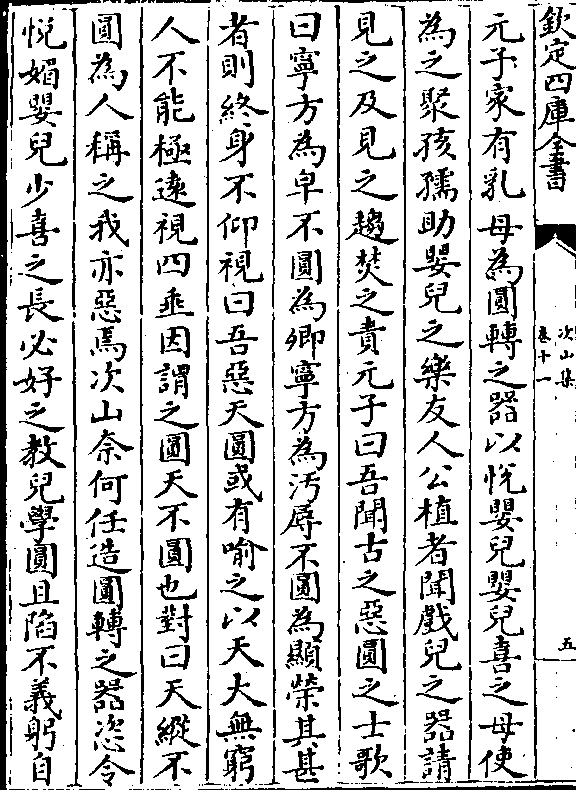 欽定四庫全書
次山集
卷十一
五
元子家有乳母為圓轉之器以悅嬰兒嬰兒喜之母使
為之聚孩孺助嬰兒之樂友人公植者聞戲兒之器請
見之及見之趨焚之責元子曰吾聞古之惡圓之士歌
曰寧方為皁不圓為卿寧方為汚辱不圓為顯榮其甚
者則終身不仰視曰吾惡天圓或有喻之以天大無窮
人不能極遠視四垂因謂之圓天不圓也對曰天縱不
圓為人稱之我亦惡焉次山奈何任造圓轉之器恣令
悅媚嬰兒少喜之長必好之教兒學圓且陷不義躬自